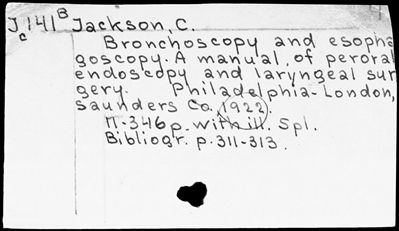 J 141 B Jackson, C.
c
Bronchoscopy and esopha
goscopy. A manual of peroral
endoscopy and laryngeal sur
gery. Philadelphia-London,
Saunders Co. (1922).
11-346 p. with ill. Spl.
Bibliogr. p. 311-313.